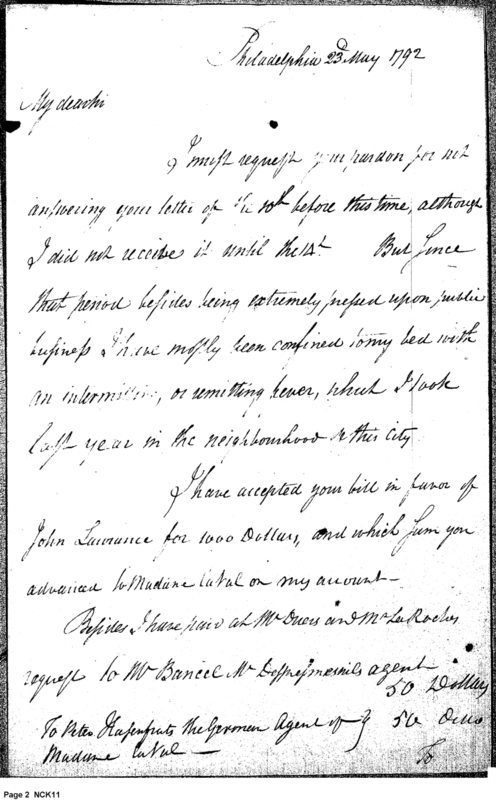 Philadelphia 23d May 1792
My dear
I must request your pardon for not
answering your letter of the 10th before this time, although
I did not receive it until the 14t. But since
that period besides being extremely pressed upon public
business I have mostly been confined to my bed with
an intermitting, or remitting fever, which I took
last year in the neighbourhood of this city
I have accepted your bill in favor of
John Lawrance for 1000 Dollars, and which sum you
advanced to Madame LaVal on my account —
Besides I have paid at Mr Duers and Mr La Roches
request to Mr Bancel Mr agent
50 Dollars
To Peter the German Agent of } 50 Ditto
Madame LaVal —
To
Page 2 NCK11